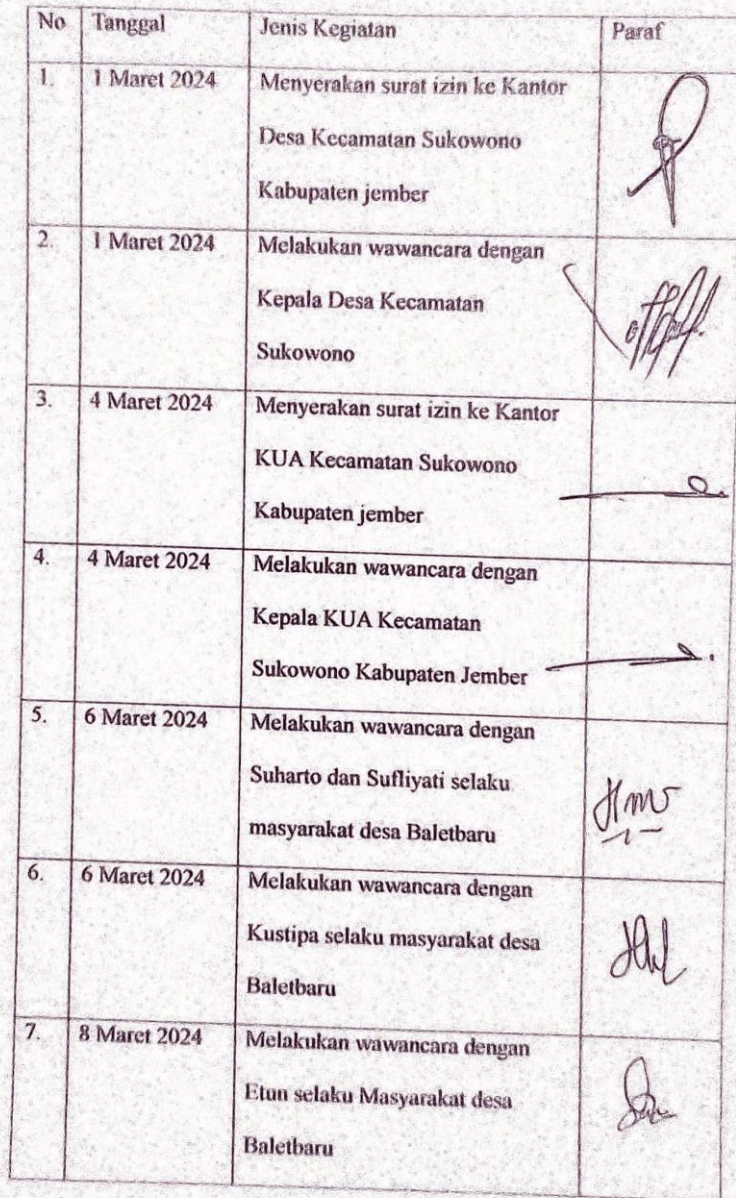 No Tanggal Jenis Kegiatan Paraf
1. 1 Maret 2024 Menyerakan surat izin ke Kantor
Desa Kecamatan Sukowono
Kabupaten jember
2. 1 Maret 2024 Melakukan wawancara dengan
Kepala Desa Kecamatan
Sukowono
3. 4 Maret 2024 Menyerakan surat izin ke Kantor
KUA Kecamatan Sukowono
Kabupaten jember
4. 4 Maret 2024 Melakukan wawancara dengan
Kepala KUA Kecamatan
Sukowono Kabupaten Jember
5. 6 Maret 2024 Melakukan wawancara dengan
Suharto dan Sufliyati selaku
masyarakat desa Baletbaru
6. 6 Maret 2024 Melakukan wawancara dengan
Kustipa selaku masyarakat desa
Baletbaru
7. 8 Maret 2024 Melakukan wawancara dengan
Etun selaku Masyarakat desa
Baletbaru